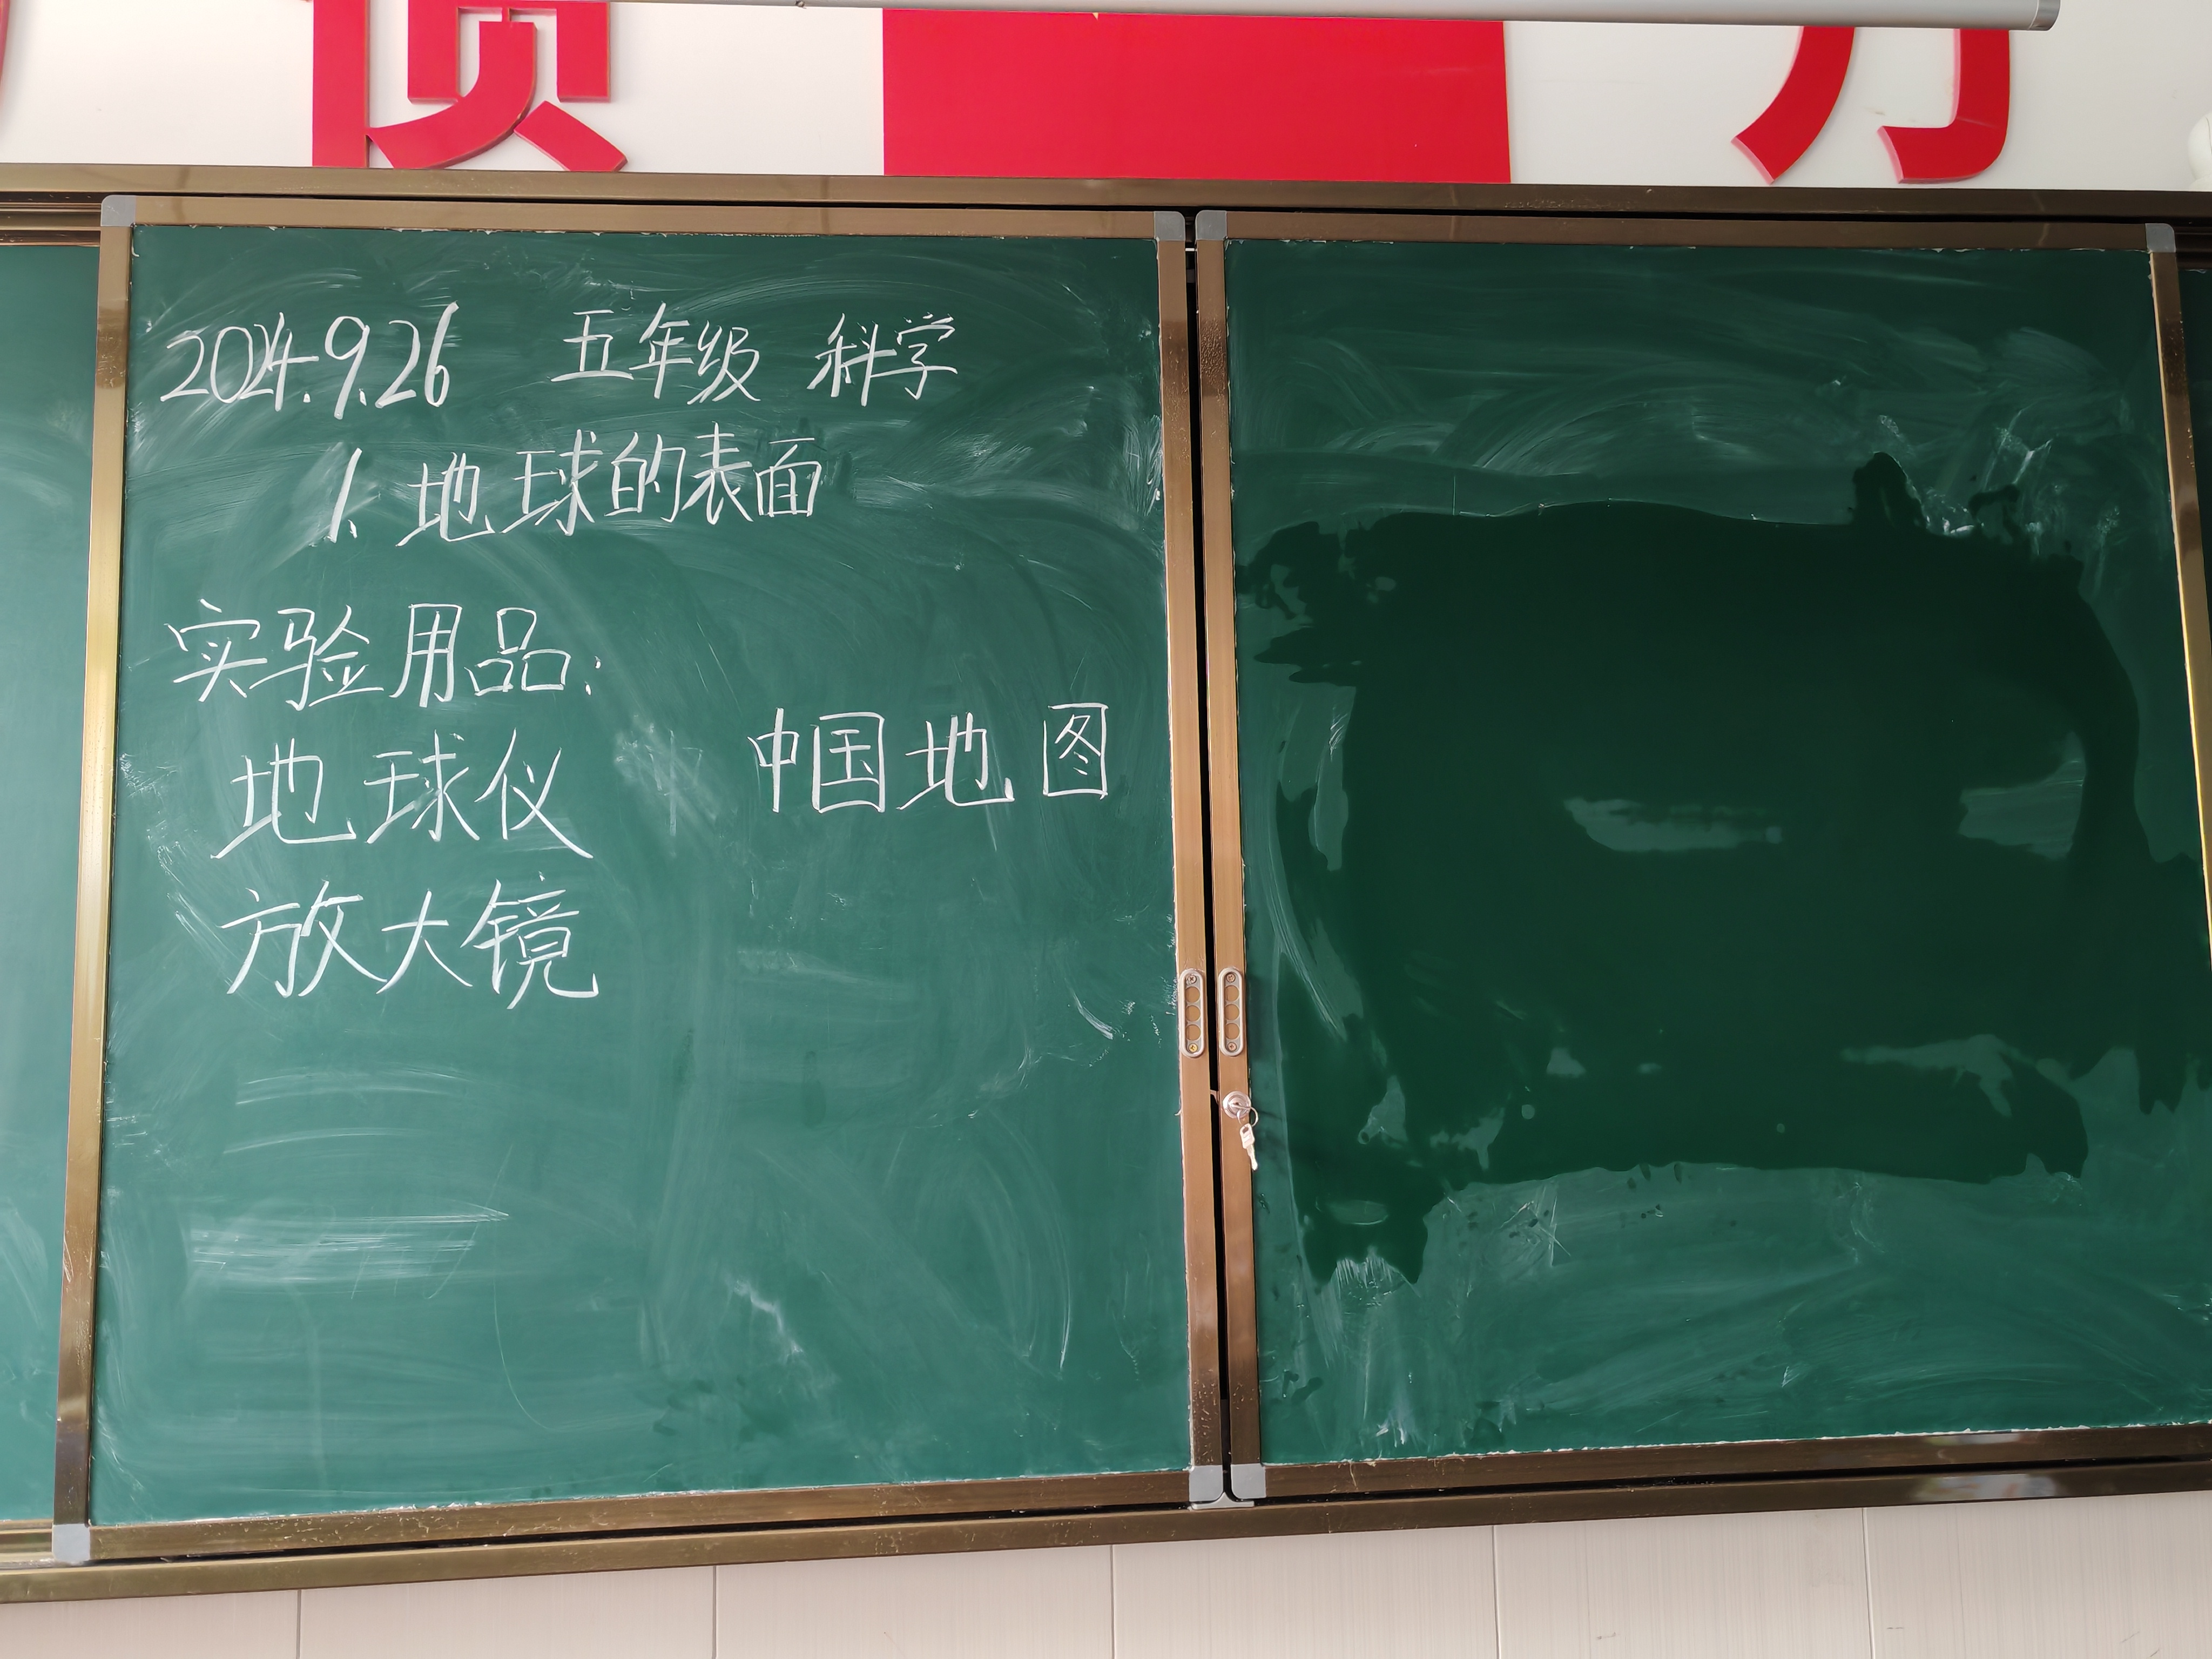 2024.9.26 五年级 科学
1. 地球的表面
实验用品:
地球仪 中国地图
放大镜